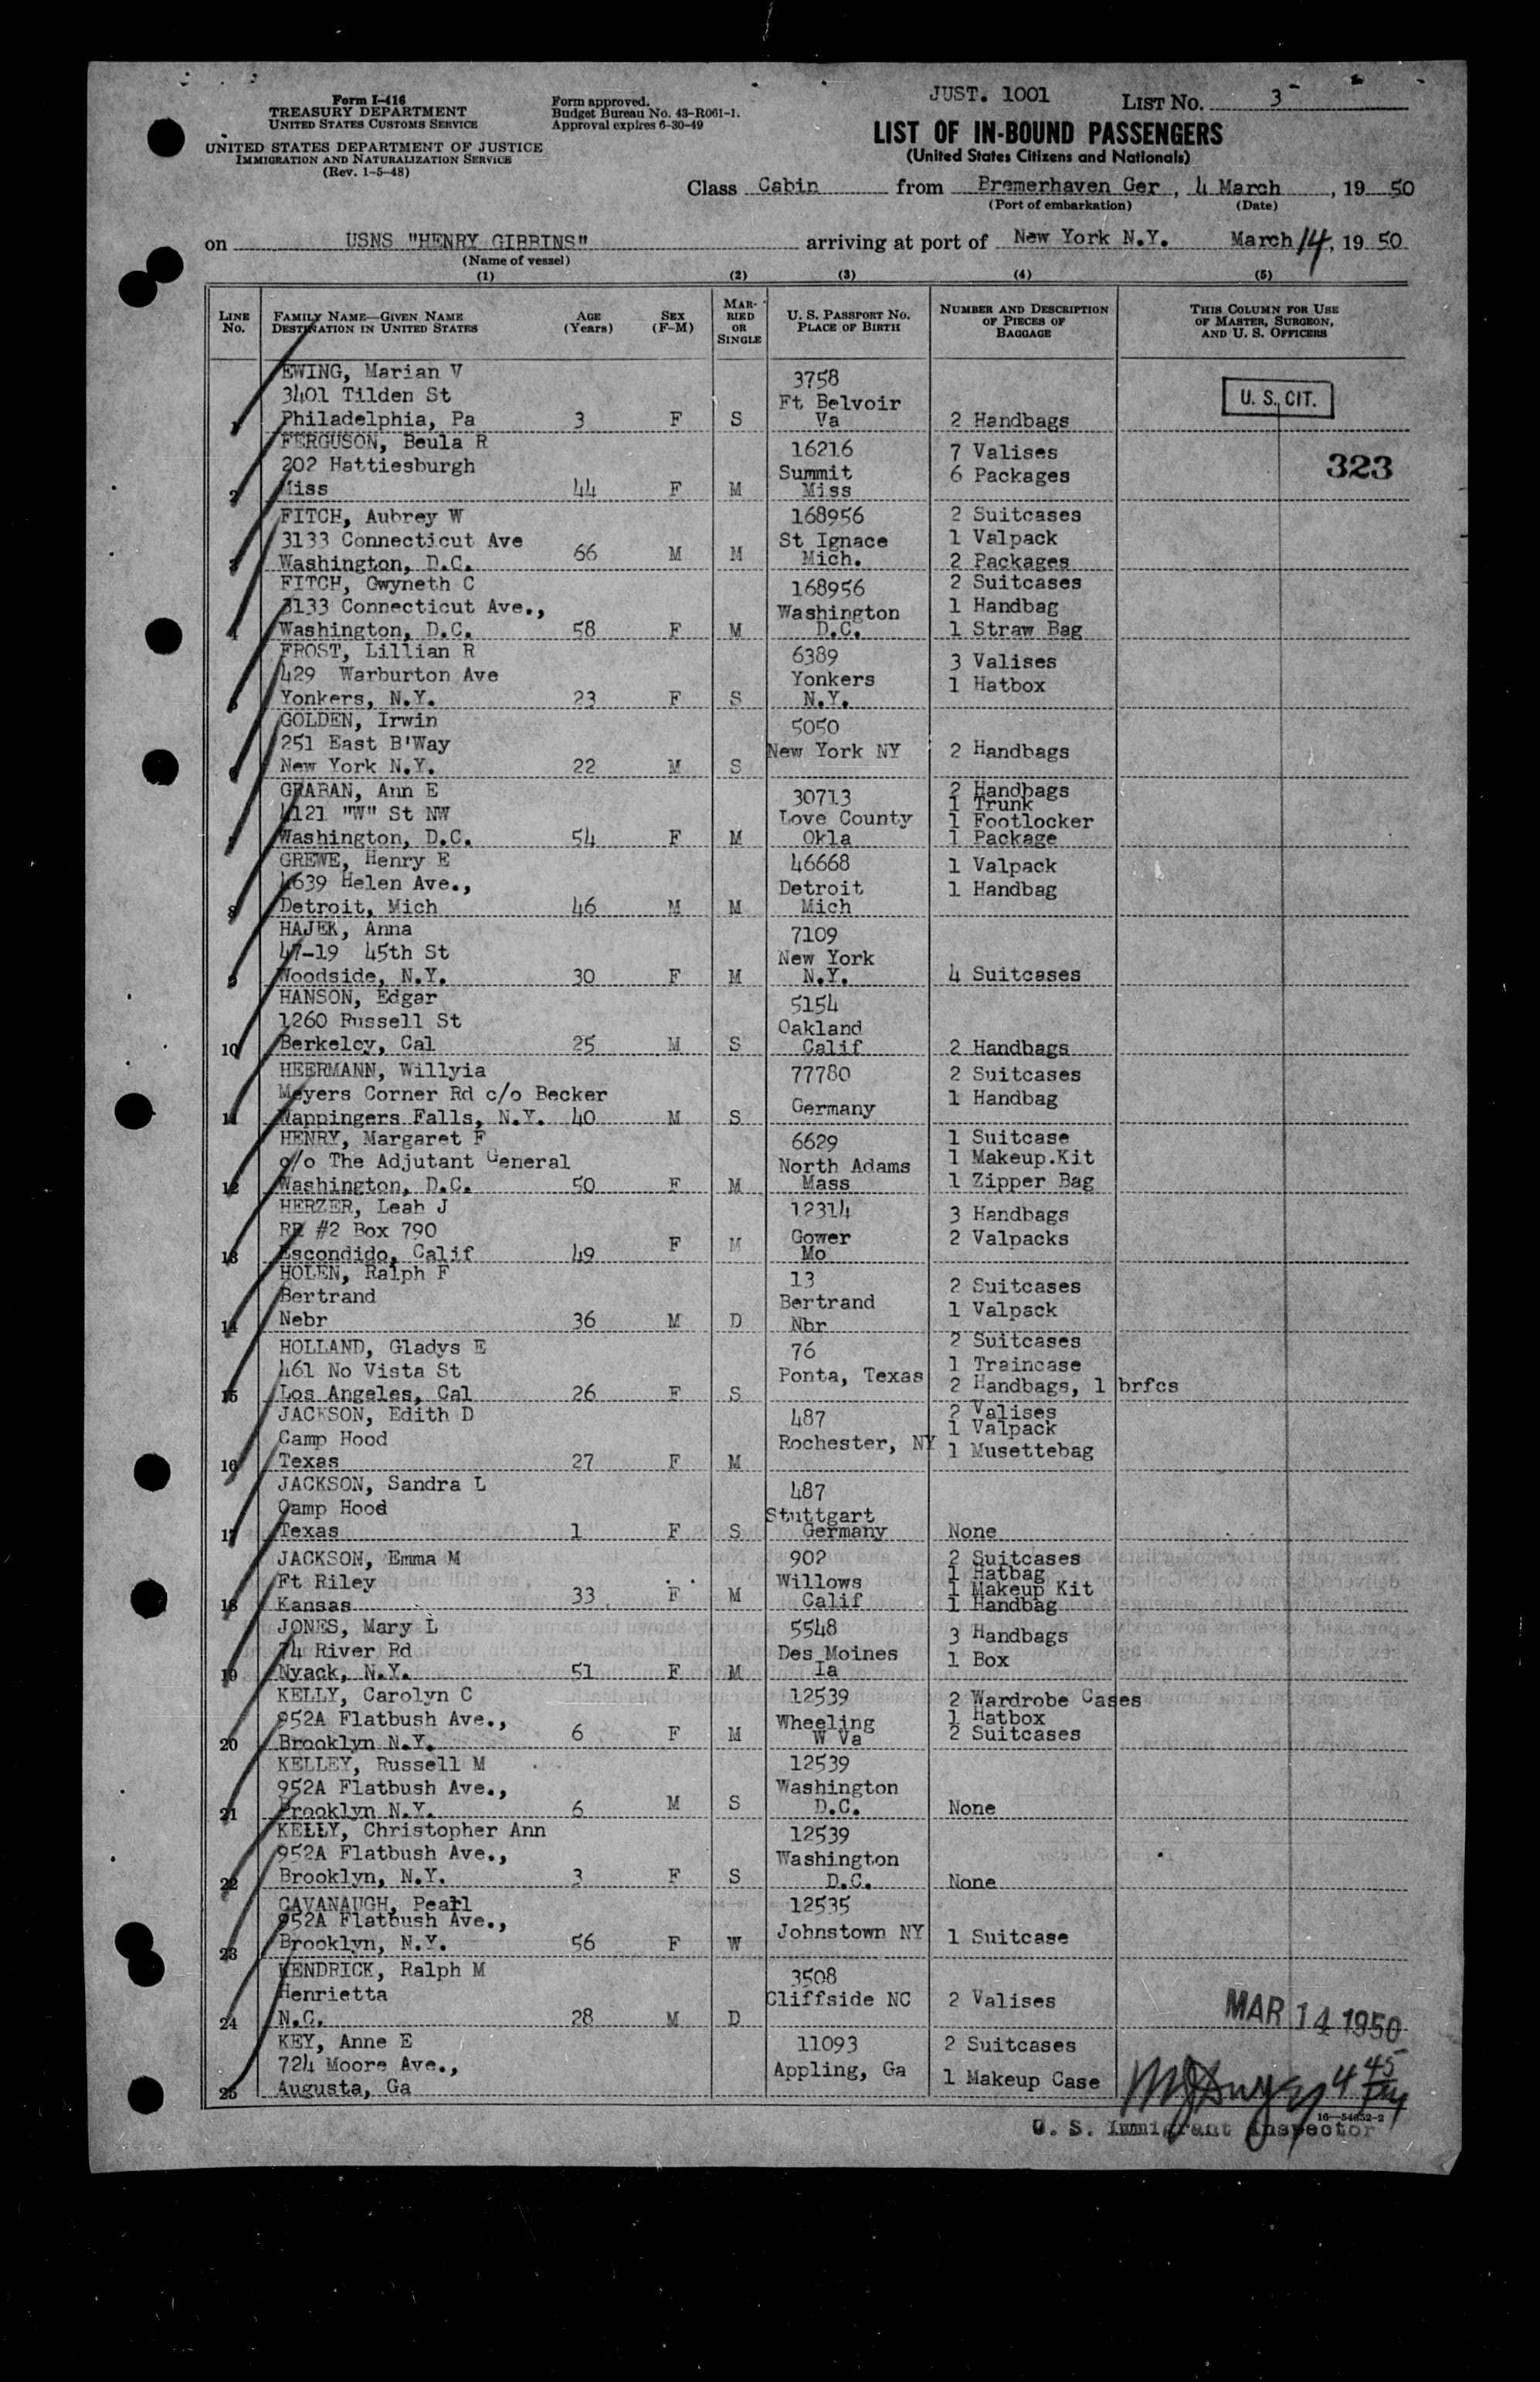 Form I-416
TREASURY DEPARTMENT
UNITED STATES CUSTOMS SERVICE
UNITED STATES DEPARTMENT OF JUSTICE
IMMIGRATION AND NATURALIZATION SERVICE
(Rev. 1-5-48)
Form approved.
Budget Bureau No. 43-R061-1.
Approval expires 6-30-49
JUST. 1001
LIST NO. 3
LIST OF IN-BOUND PASSENGERS
(United States Citizens and Nationals)
Class Cabin from Bremerhaven Ger, 4 March, 19 50
(Port of embarkation) (Date)
on USNS "HENRY GIBBINS" arriving at port of New York N.Y. March 14, 19 50
(Name of vessel)
(1) (2) (3) (4) (5)
LINE No. FAMILY NAME—GIVEN NAME DESTINATION IN UNITED STATES AGE (Years) SEX (F-M) MARRIED OR SINGLE U. S. PASSPORT NO. PLACE OF BIRTH NUMBER AND DESCRIPTION OF PIECES OF BAGGAGE THIS COLUMN FOR USE OF MASTER, SURGEON, AND U. S. OFFICERS
EWING, Marian V 3758
3401 Tilden St Ft Belvoir U. S. CIT.
1 Philadelphia, Pa 3 F S Va 2 Handbags
FERGUSON, Beula R 16216 7 Valises
202 Hattiesburgh Summit 6 Packages 323
2 Miss 44 F M Miss
FITCH, Aubrey W 168956 2 Suitcases
3133 Connecticut Ave St Ignace 1 Valpack
3 Washington, D.C. 66 M M Mich. 2 Packages
FITCH, Gwyneth C 168956 2 Suitcases
3133 Connecticut Ave., Washington 1 Handbag
4 Washington, D.C. 58 F M D.C. 1 Straw Bag
FROST, Lillian R 6389 3 Valises
429 Warburton Ave Yonkers 1 Hatbox
5 Yonkers, N.Y. 23 F S N.Y.
GOLDEN, Irwin 5050
251 East B'Way New York NY 2 Handbags
6 New York N.Y. 22 M S
GRABAN, Ann E 30713 2 Handbags
4121 "W" St NW Love County 1 Trunk
1 Footlocker
7 Washington, D.C. 54 F M Okla 1 Package
GREWE, Henry E 46668 1 Valpack
4639 Helen Ave., Detroit 1 Handbag
8 Detroit, Mich 46 M M Mich
HAJEK, Anna 7109
47-19 45th St New York
9 Woodside, N.Y. 30 F M N.Y. 4 Suitcases
HANSON, Edgar 5154
1260 Russell St Oakland
10 Berkeley, Cal 25 M S Calif 2 Handbags
HEERMANN, Willyia 77780 2 Suitcases
Meyers Corner Rd c/o Becker 1 Handbag
11 Wappingers Falls, N.Y. 40 M S Germany
HENRY, Margaret F 6629 1 Suitcase
c/o The Adjutant General North Adams 1 Makeup.Kit
12 Washington, D.C. 50 F M Mass 1 Zipper Bag
HERZER, Leah J 12314 3 Handbags
RR #2 Box 790 Gower 2 Valpacks
13 Escondido, Calif 49 F M Mo
HOLEN, Ralph F 13 2 Suitcases
Bertrand Bertrand 1 Valpack
14 Nebr 36 M D Nbr
HOLLAND, Gladys E 76 2 Suitcases
461 No Vista St Ponta, Texas 1 Traincase
15 Los Angeles, Cal 26 F S 2 Handbags, 1 brfcs
JACKSON, Edith D 487 2 Valises
1 Valpack
Camp Hood Rochester, NY 1 Musettebag
16 Texas 27 F M
JACKSON, Sandra L 487
Camp Hood Stuttgart
17 Texas 1 F S Germany None
JACKSON, Emma M 902 2 Suitcases
1 Hatbag
Ft Riley Willows 1 Makeup Kit
18 Kansas 33 F M Calif 1 Handbag
JONES, Mary L 5548 3 Handbags
74 River Rd Des Moines 1 Box
19 Nyack, N.Y. 51 F M Ia
KELLY, Carolyn C 12539 2 Wardrobe Cases
952A Flatbush Ave., Wheeling 1 Hatbox
20 Brooklyn N.Y. 6 F M W Va 2 Suitcases
KELLEY, Russell M 12539
952A Flatbush Ave., Washington
21 Brooklyn N.Y. 6 M S D.C. None
KELLY, Christopher Ann 12539
952A Flatbush Ave., Washington
22 Brooklyn, N.Y. 3 F S D.C. None
CAVANAUGH, Pearl 12535
952A Flatbush Ave., Johnstown NY 1 Suitcase
23 Brooklyn, N.Y. 56 F W
KENDRICK, Ralph M 3508
Henrietta Cliffside NC 2 Valises
24 N.C. 28 M D MAR 14 1950
KEY, Anne E 11093 2 Suitcases
724 Moore Ave., Appling, Ga 1 Makeup Case 4 45 PM
25 Augusta, Ga
16—54652-2
U. S. Immigrant Inspector